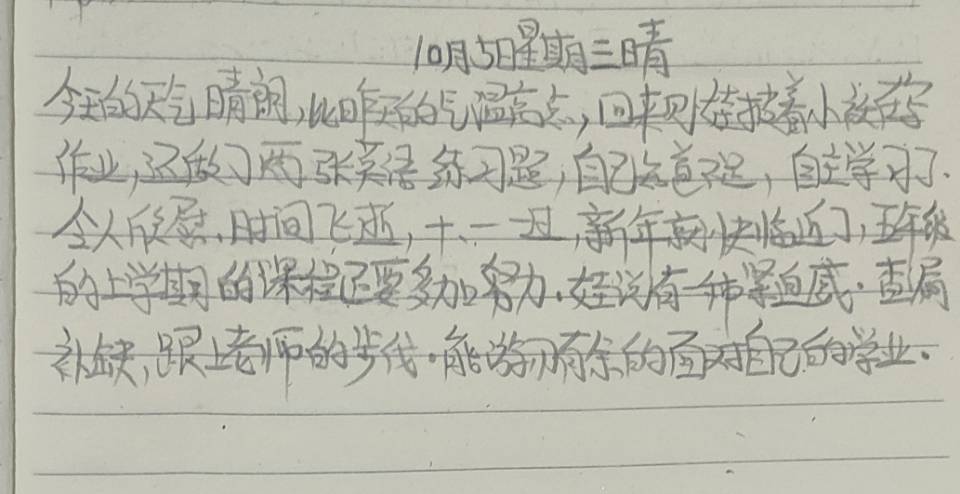 10月5日星期三晴
今天的天气晴朗,比昨天的气温高点,回来时娃披着小被在写
作业,还做了两张英语练习题,自己知道不足,自主学习了.
令人欣慰.时间飞逝,十.一一过,新年就快临近了,五年级
的上学期的课程还要多加努力.娃说有一种紧迫感.查漏
补缺,跟上老师的步伐.能游刃有余的面对自己的学业.